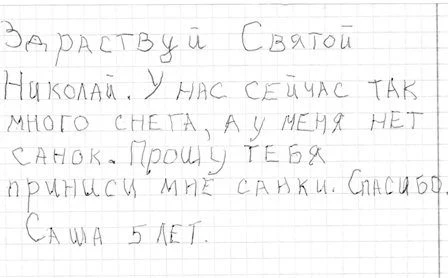 Здраствуй Святой
Николай. У нас сейчас так
много снега, а у меня нет
санок. Прошу тебя
приниси мне санки. Спасибо.
Саша 5 лет.